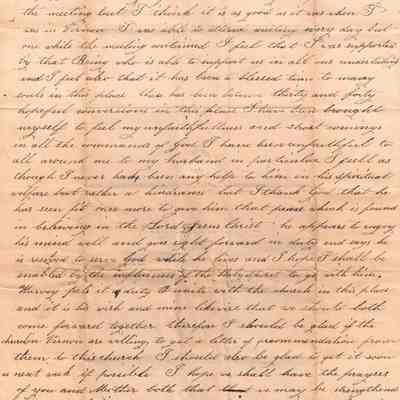 the meeting but I think it is as good as it was when I
was in Vernon I was able to attend meeting every day but
one while the meeting continued I feel that I was supported
by that Being who is able to support us in all our undertakings
and I feel also that it has been a blessed time to many
souls in this place thare has been between thirty and forty
hopeful conversions in this place I have been brought
myself to feel my unfaithfullness and short comings
in all the commands of God I have been unfaithfull to
all around me to my husband in particular I feell as
though I never had been any help to him in his spiritual
welfare but rather a hindrance but I thank God that he
has seen fit once more to give him that peace which is found
in believeing in the Lord Jesus Christ he appears to enjoy
his mind well and goes right forward in duty and says he
is resolved to serve God while he lives and I hope I shall be
enabled by the influences of the Holy Spirit to go with him,
Harvey feels it a duty to unite with the church in this place
and it is his wish and mine likewise that we should both
come forward together therefor I should be glad if the
church Vernon are willing, to get a letter of recommendation from
them to this church I should also be glad to get it soon
a next week if possible I hope we shall have the prayers
of you and Mother both that we may be strengthend